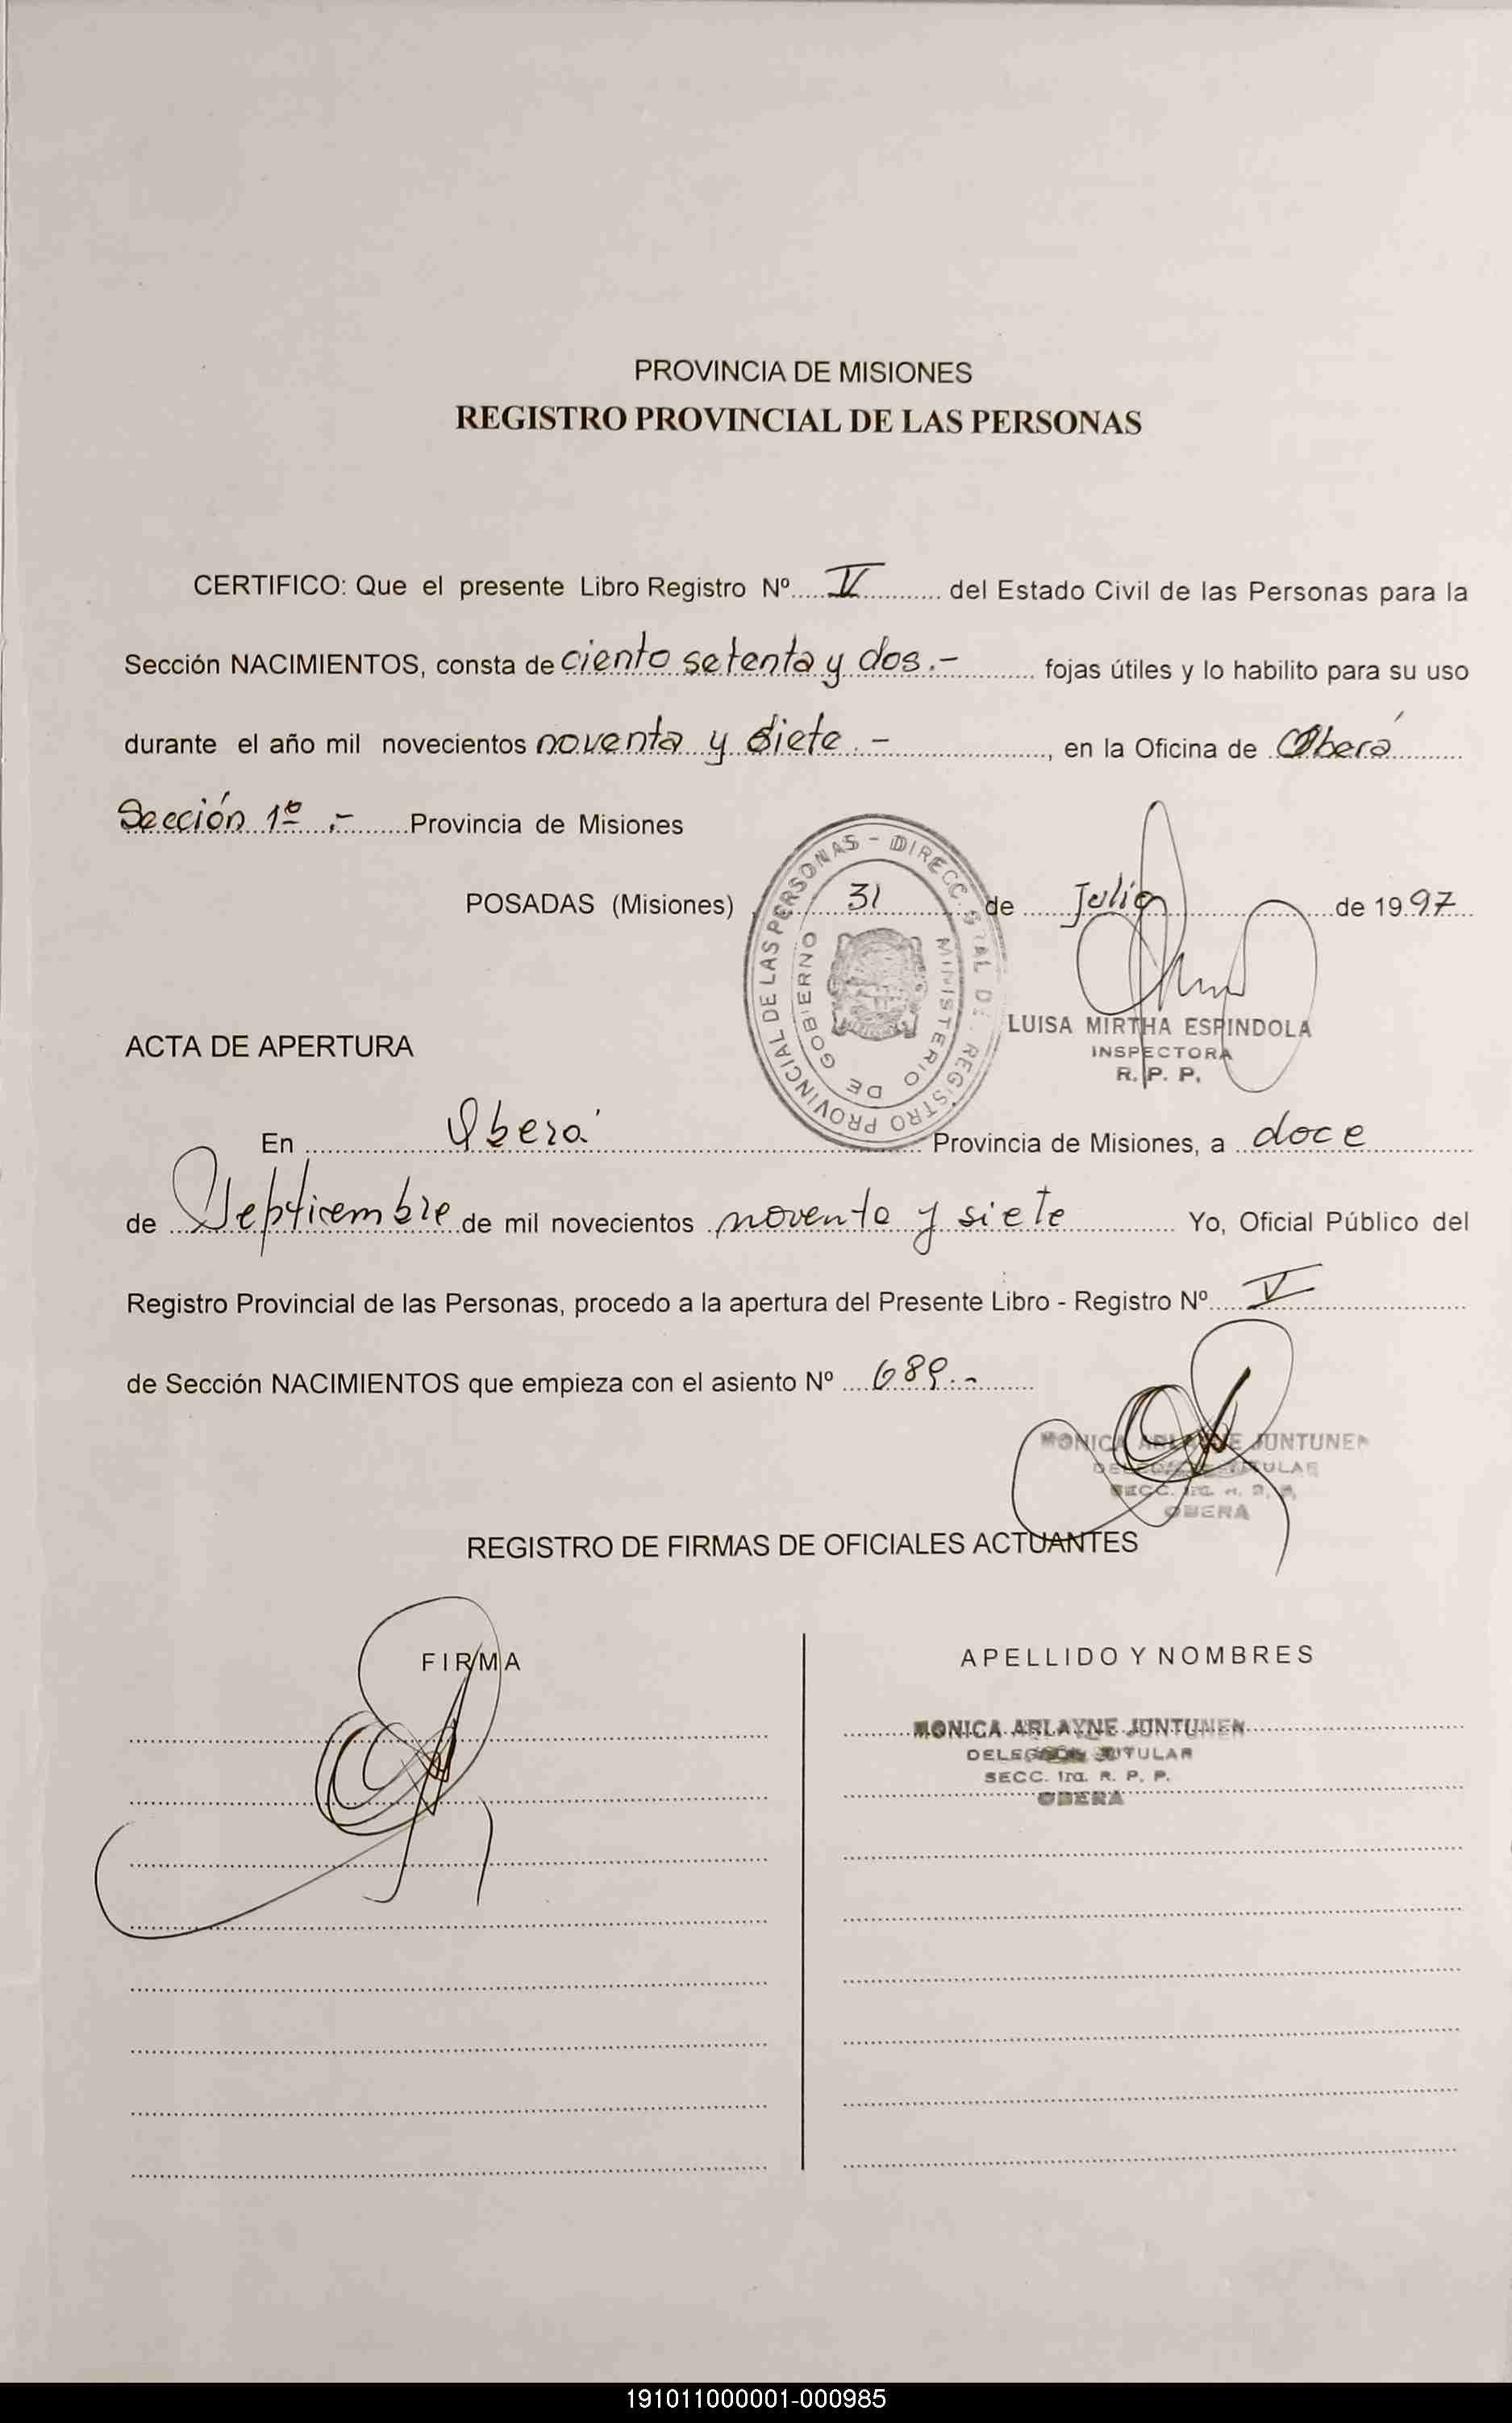 PROVINCIA DE MISIONES
REGISTRO PROVINCIAL DE LAS PERSONAS
CERTIFICO: Que el presente Libro Registro Nº V del Estado Civil de las Personas para la
Sección NACIMIENTOS, consta de ciento setenta y dos.- fojas útiles y lo habilito para su uso
durante el año mil novecientos noventa y siete.- , en la Oficina de Oberá
Sección 1º .- Provincia de Misiones
POSADAS (Misiones) 31 de Julio de 1997
REGISTRO PROVINCIAL DE LAS PERSONAS - DIRECC. GRAL DE
MINISTERIO DE GOBIERNO
LUISA MIRTHA ESPINDOLA
INSPECTORA
R. P. P.
ACTA DE APERTURA
En Oberá Provincia de Misiones, a doce
de Septiembre de mil novecientos noventa y siete Yo, Oficial Público del
Registro Provincial de las Personas, procedo a la apertura del Presente Libro - Registro Nº V
de Sección NACIMIENTOS que empieza con el asiento Nº 689.-
MONICA ARLAYNE JUNTUNEN
TITULAR
SECC. 1ra. R. P. P.
OBERA
REGISTRO DE FIRMAS DE OFICIALES ACTUANTES
FIRMA
APELLIDO Y NOMBRES
MONICA ARLAYNE JUNTUNEN
TITULAR
SECC. 1ra. R. P. P.
OBERA
191011000001-000985